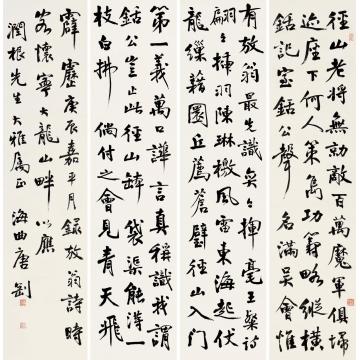 徑山老將無勍敵百萬魔軍俱埽
迹座下何人策雋功籌略縱橫
銛記室銛公聲名滿吳會惟
有放翁最先識奕奕揮毫王粲詩
翩翩插羽陳琳檄風雷東海起伏
龍繅籍圜丘薦蒼璧徑山入門
第一義萬口譁言真稱識我謂
銛公豈止此徑山鉢袋渠能得一
枝白拂倘付之會見青天飛
霹靂庚辰嘉平月録放翁詩時
客懷寧大龍山畔以應
潤根先生大雅屬正 海曲唐劉